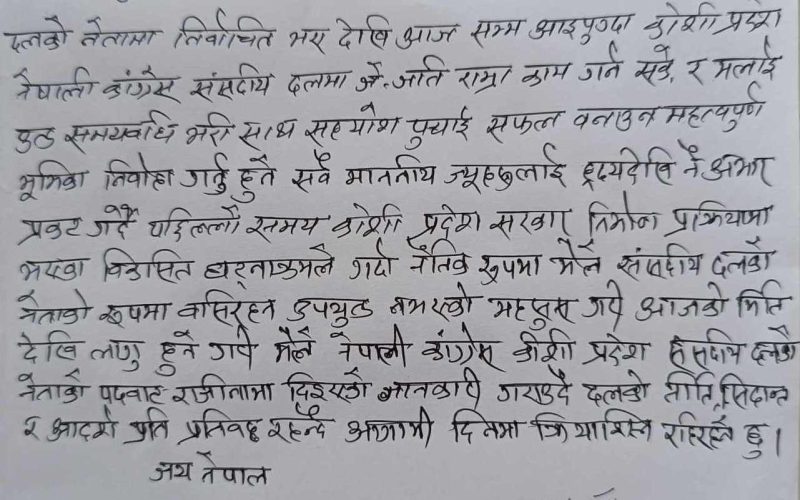 दलको नेतामा निर्वाचित भए देखि आज सम्म आइपुग्दा कोशी प्रदेश
नेपाली कांग्रेस संसदीय दलमा जे-जति राम्रा काम गर्न सके, र मलाई
पुरा समयावधि भरी साथ सहयोग पुर्याई सफल बनाउन महत्वपुर्ण
भूमिका निर्वाह गर्नु हुने सबै माननीय ज्यूहरूलाई हृदयदेखि नै आभार
प्रकट गर्दै पछिल्लो समय कोशी प्रदेश सरकार निर्माण प्रक्रियामा
भएका विकसित घटनाक्रमले गर्दा नैतिक रूपमा मैले संसदीय दलको
नेताको रूपमा बसिरहन उपयुक्त नभएको महसुस गरी आजको मिति
देखि लागु हुने गरी मैले नेपाली कांग्रेस कोशी प्रदेश संसदीय दलको
नेताको पदबाट राजीनामा दिइएको जानकारी गराउदै दलको नीति, सिद्दान्त
र आदर्श प्रति प्रतिवद्ध रहन्दै आगामी दिनमा क्रियाशिल रहिरहने छु।
जय नेपाल